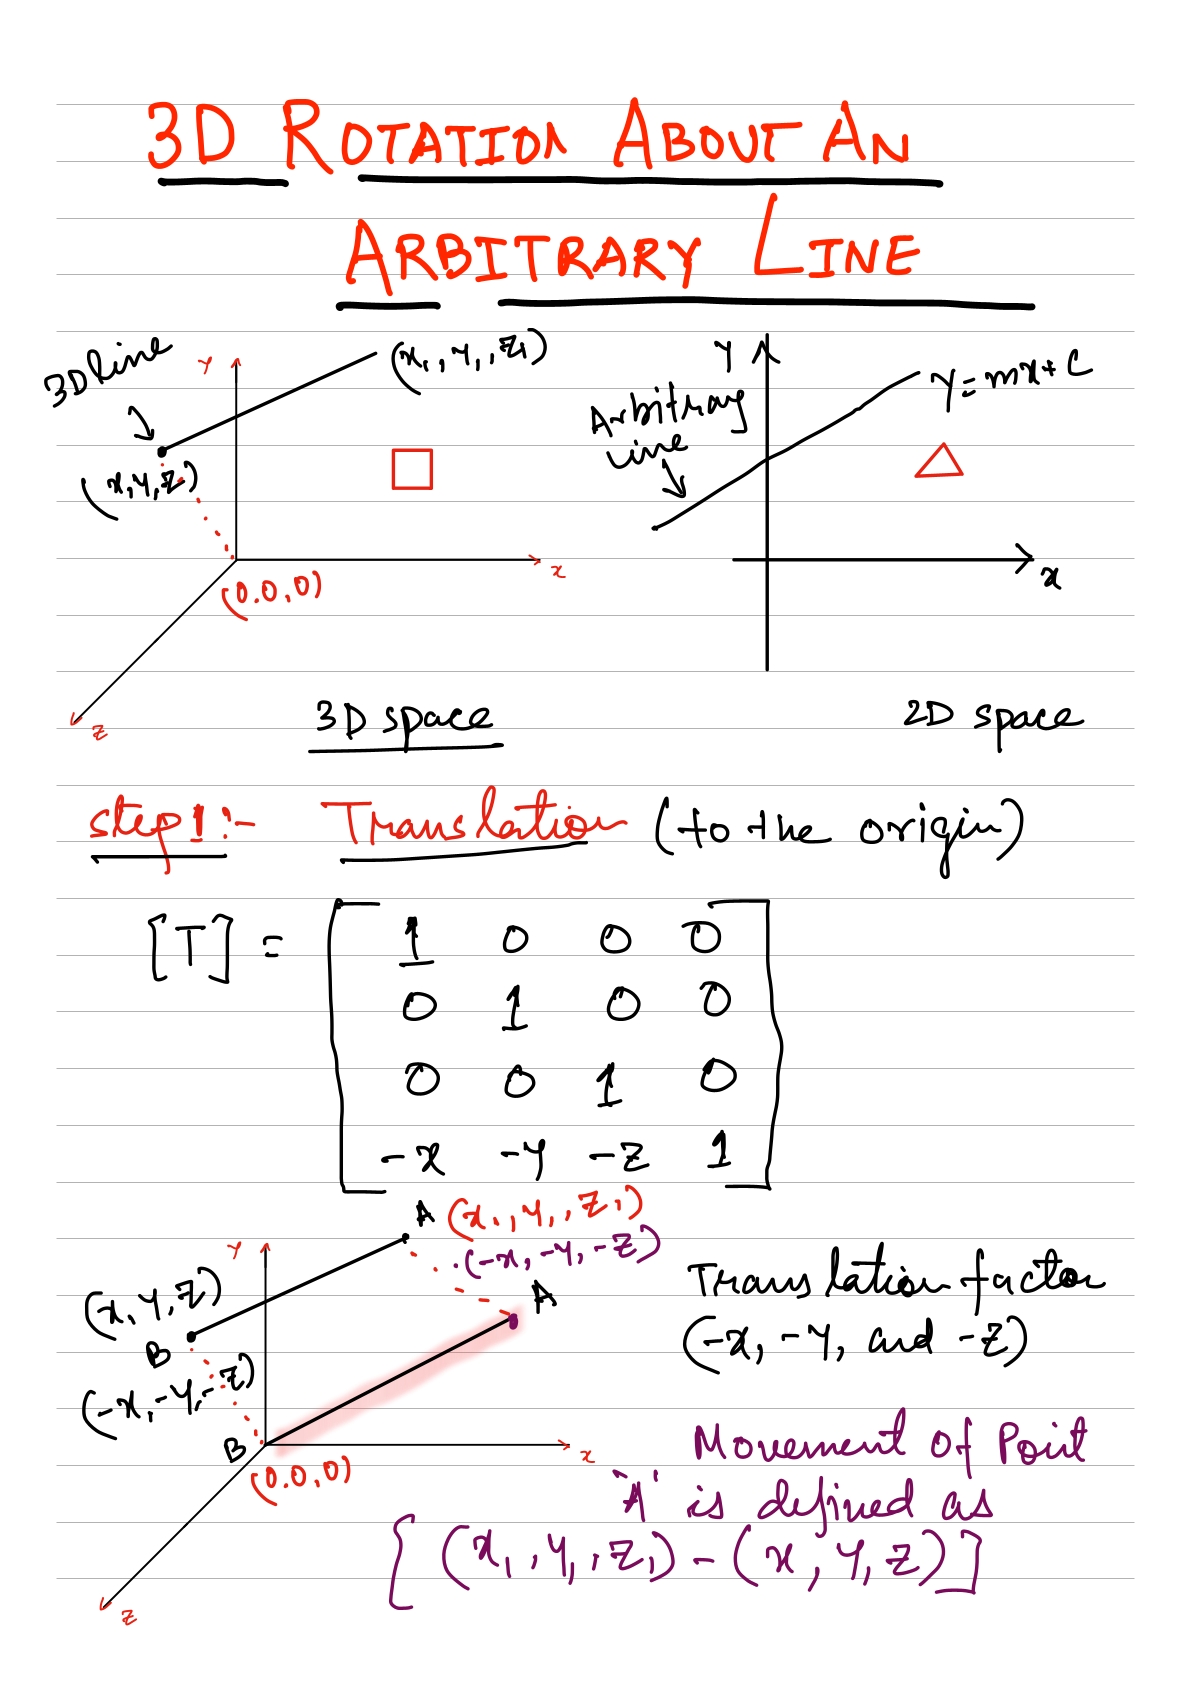 3D ROTATION ABOUT AN
ARBITRARY LINE
3D line
Y
(x₁, y₁, z₁)
(x, y, z)
(0.0,0)
x
z
3D space
Y
Y=mx+C
Arbitray
line
x
2D space
step 1:- Translation (to the origin)
[T] =
1 0 0 0
0 1 0 0
0 0 1 0
-x -y -z 1
A (x₁, y₁, z₁)
(-x, -y, -z)
Y
A
(x, y, z)
B
(-x, -y, -z)
B
(0.0,0)
x
z
Translation factor
(-x, -y, and -z)
Movement of Point
'A' is defined as
[(x₁, y₁, z₁) - (x, y, z)]